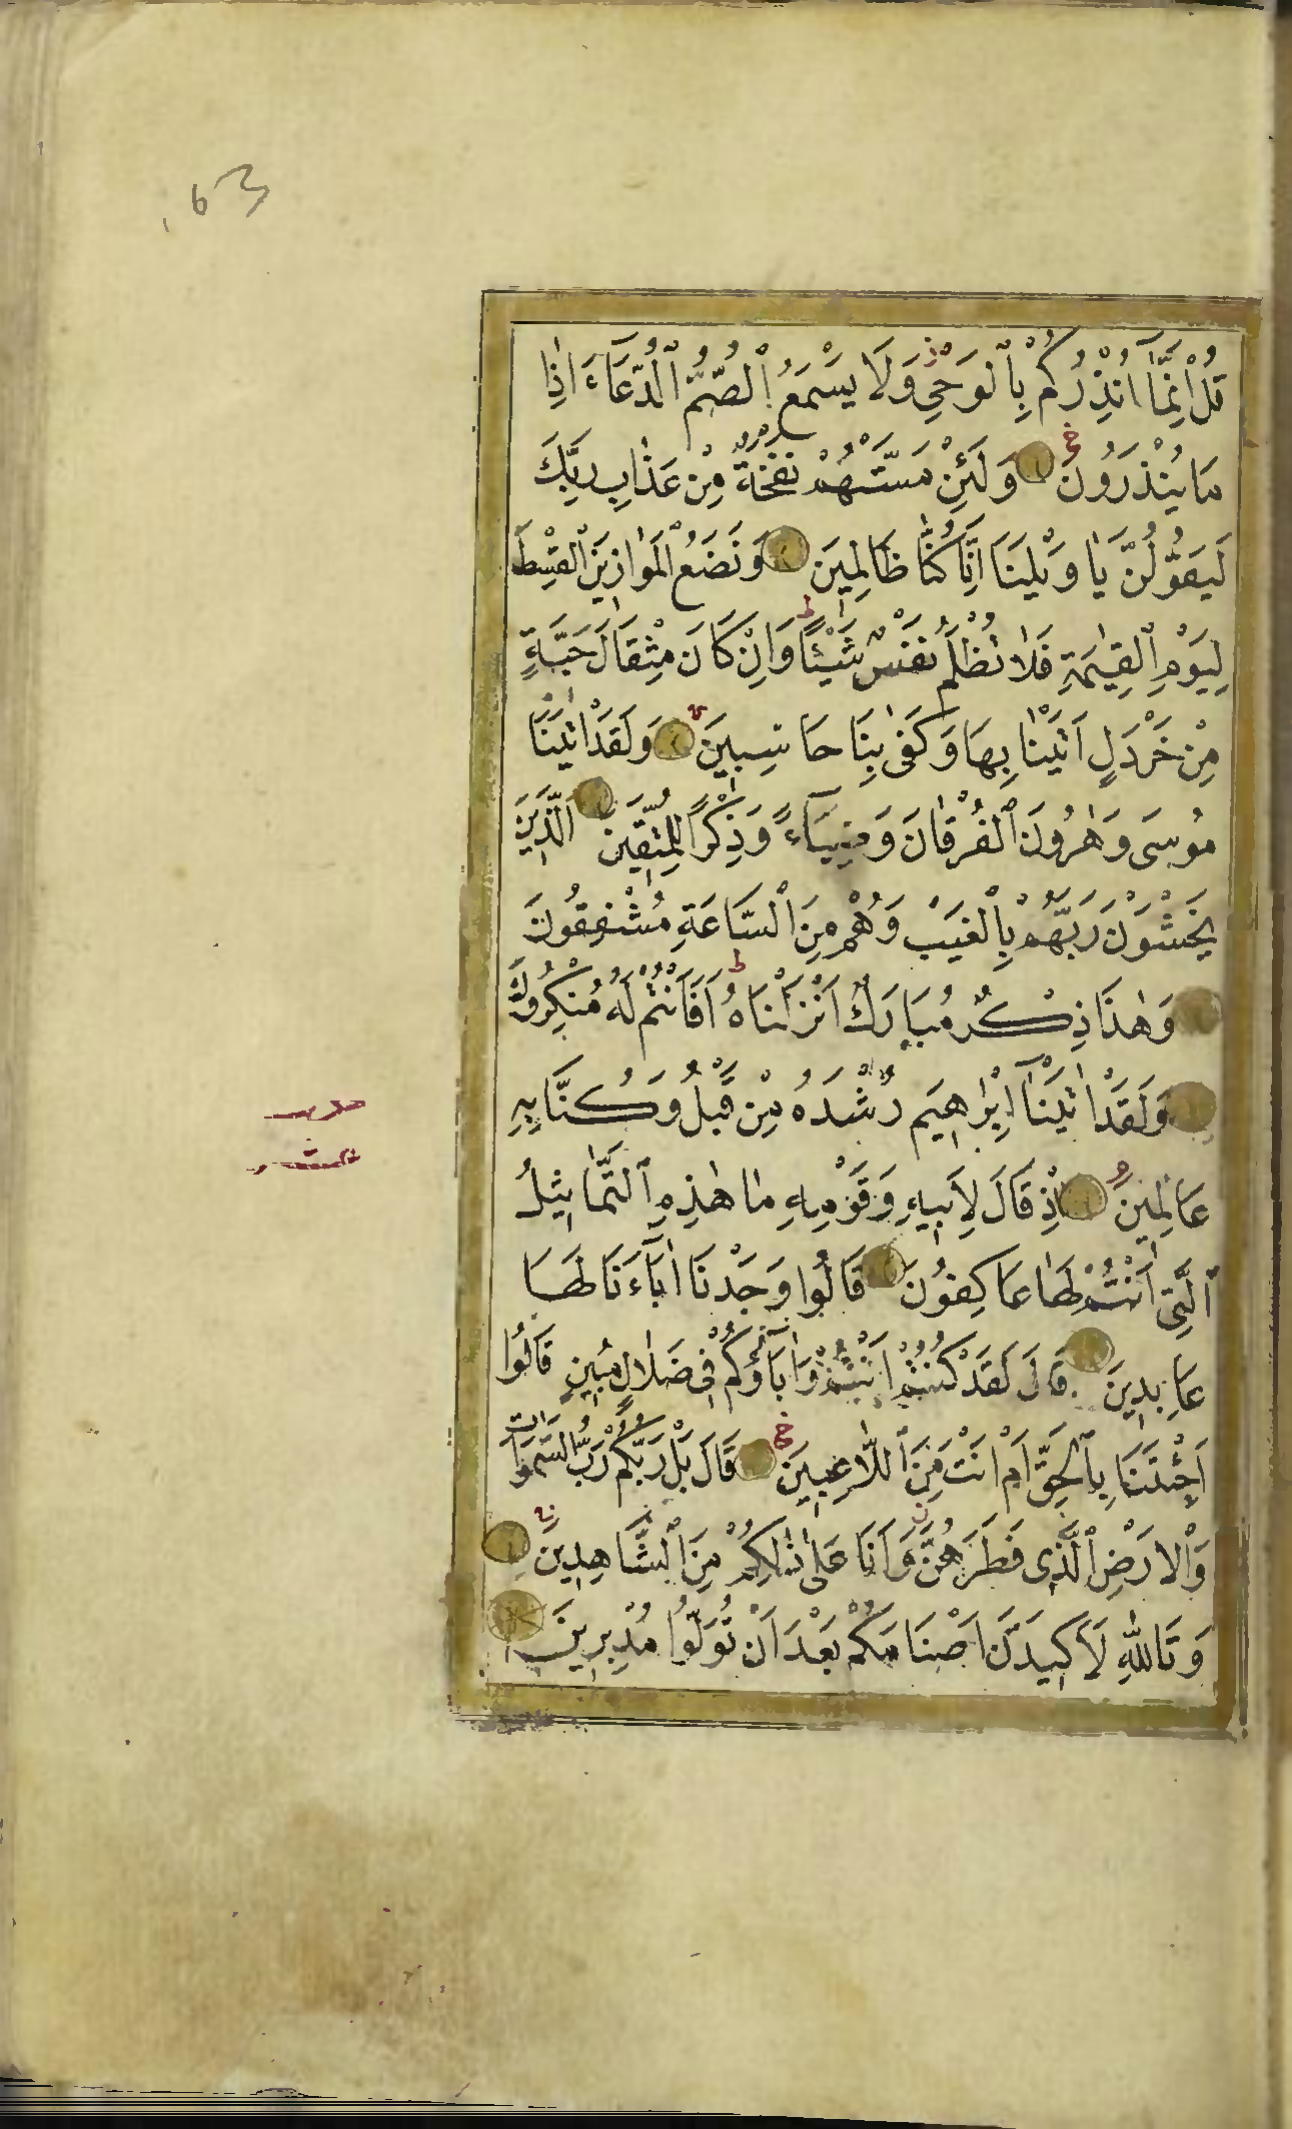 163
قُلْ اِنَّمَٓا اُنْذِرُكُمْ بِالْوَحْيِ وَلَا يَسْمَعُ الصُّمُّ الدُّعَٓاءَ اِذٰا
مَا يُنْذَرُونَ وَلَئِنْ مَسَّتْهُمْ نَفْحَةٌ مِنْ عَذَابِ رَبِّكَ
لَيَقُولُنَّ يَا وَيْلَنَا اِنَّا كُنَّا ظَالِمِينَ وَنَضَعُ الْمَوَازِينَ الْقِسْطَ
لِيَوْمِ الْقِيٰمَةِ فَلَا تُظْلَمُ نَفْسٌ شَيْئًا ط وَاِنْ كَانَ مِثْقَالَ حَبَّةٍ
مِنْ خَرْدَلٍ اَتَيْنَا بِهَا وَكَفٰى بِنَا حَاسِبِينَ وَلَقَدْ اٰتَيْنَا
مُوسَى وَهٰرُونَ الْفُرْقَانَ وَضِيَٓاءً وَذِكْرًا لِلْمُتَّقِينَ الَّذِينَ
يَخْشَوْنَ رَبَّهُمْ بِالْغَيْبِ وَهُمْ مِنَ السَّاعَةِ مُشْفِقُونَ
وَهٰذَا ذِكْرٌ مُبَارَكٌ اَنْزَلْنَاهُ ط اَفَاَنْتُمْ لَهُ مُنْكِرُونَ
وَلَقَدْ اٰتَيْنَٓا اِبْرٰاهِيمَ رُشْدَهُ مِنْ قَبْلُ وَكُنَّا بِهِ
عَالِمِينَ اِذْ قَالَ لِاَبِيهِ وَقَوْمِهِ مَا هٰذِهِ التَّمَاثِيلُ
الَّتِي اَنْتُمْ لَهَا عَاكِفُونَ قَالُوا وَجَدْنَا اٰبَٓاءَنَا لَهَا
عَابِدِينَ قَالَ لَقَدْ كُنْتُمْ اَنْتُمْ وَاٰبَٓاؤُكُمْ فِي ضَلَالٍ مُبِينٍ قَالُوا
اَجِئْتَنَا بِالْحَقِّ اَمْ اَنْتَ مِنَ اللَّاعِبِينَ قَالَ بَلْ رَبُّكُمْ رَبُّ السَّمٰوَاتِ
وَالْاَرْضِ الَّذِي فَطَرَهُنَّ وَاَنَا عَلٰى ذٰلِكُمْ مِنَ الشَّاهِدِينَ
وَتَاللّٰهِ لَاَكِيدَنَّ اَصْنَامَكُمْ بَعْدَ اَنْ تُوَلُّوا مُدْبِرِينَ